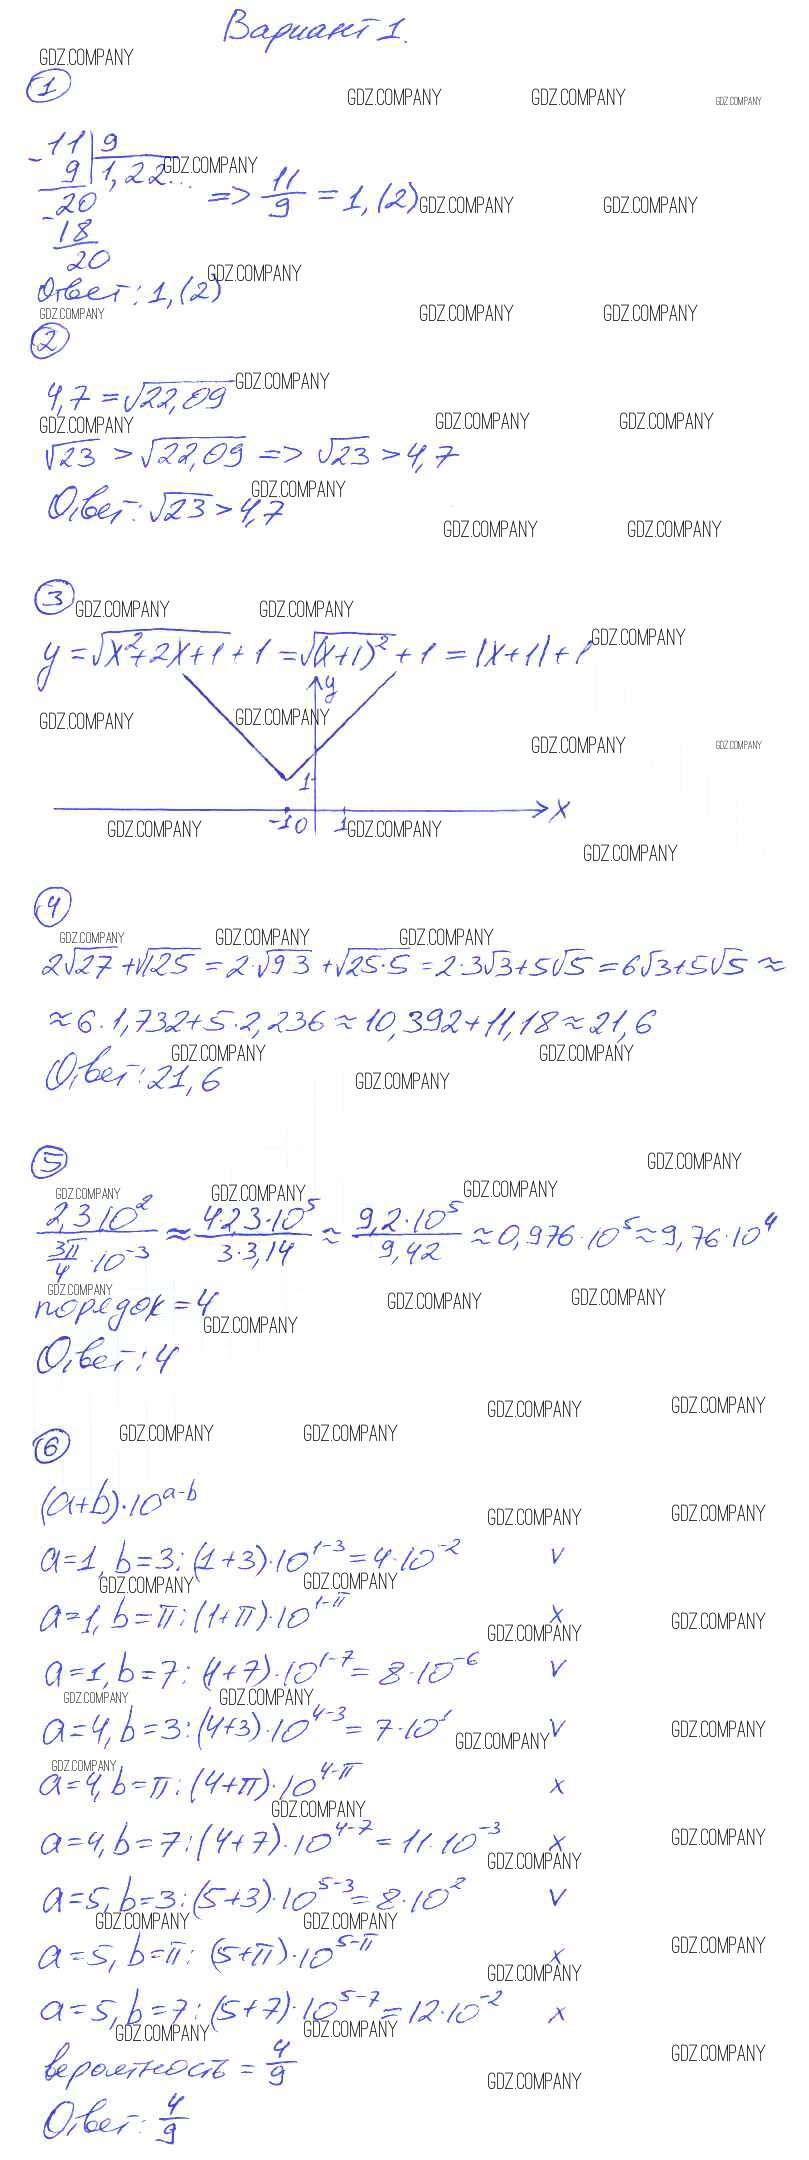 Вариант 1.
GDZ.COMPANY
1
GDZ.COMPANY GDZ.COMPANY GDZ.COMPANY
- 11 | 9
9 | 1,22... GDZ.COMPANY
20 => 11/9 = 1,(2) GDZ.COMPANY GDZ.COMPANY
- 18
20
GDZ.COMPANY
Ответ: 1,(2)
GDZ.COMPANY GDZ.COMPANY GDZ.COMPANY
2
4,7 = √22,09 GDZ.COMPANY
GDZ.COMPANY GDZ.COMPANY GDZ.COMPANY
√23 > √22,09 => √23 > 4,7
GDZ.COMPANY
Ответ: √23 > 4,7
GDZ.COMPANY GDZ.COMPANY
3
GDZ.COMPANY GDZ.COMPANY
y = √x²+2x+1 + 1 = √(x+1)² + 1 = |x+1| + 1 GDZ.COMPANY
y
GDZ.COMPANY GDZ.COMPANY
GDZ.COMPANY GDZ.COMPANY
1
x
-1 0 1
GDZ.COMPANY GDZ.COMPANY
GDZ.COMPANY
4
GDZ.COMPANY GDZ.COMPANY GDZ.COMPANY
2√27 + √125 = 2·√9·3 + √25·5 = 2·3√3 + 5√5 = 6√3 + 5√5 ≈
≈ 6·1,732 + 5·2,236 ≈ 10,392 + 11,18 ≈ 21,6
GDZ.COMPANY GDZ.COMPANY
Ответ: 21,6 GDZ.COMPANY
5
GDZ.COMPANY
GDZ.COMPANY GDZ.COMPANY GDZ.COMPANY
2,3·10²/(3π/4 · 10⁻³) ≈ 4·2,3·10⁵/(3·3,14) ≈ 9,2·10⁵/9,42 ≈ 0,976·10⁵ ≈ 9,76·10⁴
GDZ.COMPANY GDZ.COMPANY GDZ.COMPANY
порядок = 4
GDZ.COMPANY
Ответ: 4
GDZ.COMPANY GDZ.COMPANY
6
GDZ.COMPANY GDZ.COMPANY
(a+b)·10^(a-b)
GDZ.COMPANY GDZ.COMPANY
a=1, b=3: (1+3)·10^(1-3) = 4·10⁻² v
GDZ.COMPANY GDZ.COMPANY
a=1, b=π: (1+π)·10^(1-π) x
GDZ.COMPANY GDZ.COMPANY
a=1, b=7: (1+7)·10^(1-7) = 8·10⁻⁶ v
GDZ.COMPANY GDZ.COMPANY
a=4, b=3: (4+3)·10^(4-3) = 7·10¹ v
GDZ.COMPANY GDZ.COMPANY
GDZ.COMPANY
a=4, b=π: (4+π)·10^(4-π) x
GDZ.COMPANY
a=4, b=7: (4+7)·10^(4-7) = 11·10⁻³ x
GDZ.COMPANY GDZ.COMPANY
a=5, b=3: (5+3)·10^(5-3) = 8·10² v
GDZ.COMPANY GDZ.COMPANY
a=5, b=π: (5+π)·10^(5-π) x
GDZ.COMPANY GDZ.COMPANY
a=5, b=7: (5+7)·10^(5-7) = 12·10⁻² x
GDZ.COMPANY GDZ.COMPANY
вероятность = 4/9 GDZ.COMPANY
GDZ.COMPANY
Ответ: 4/9